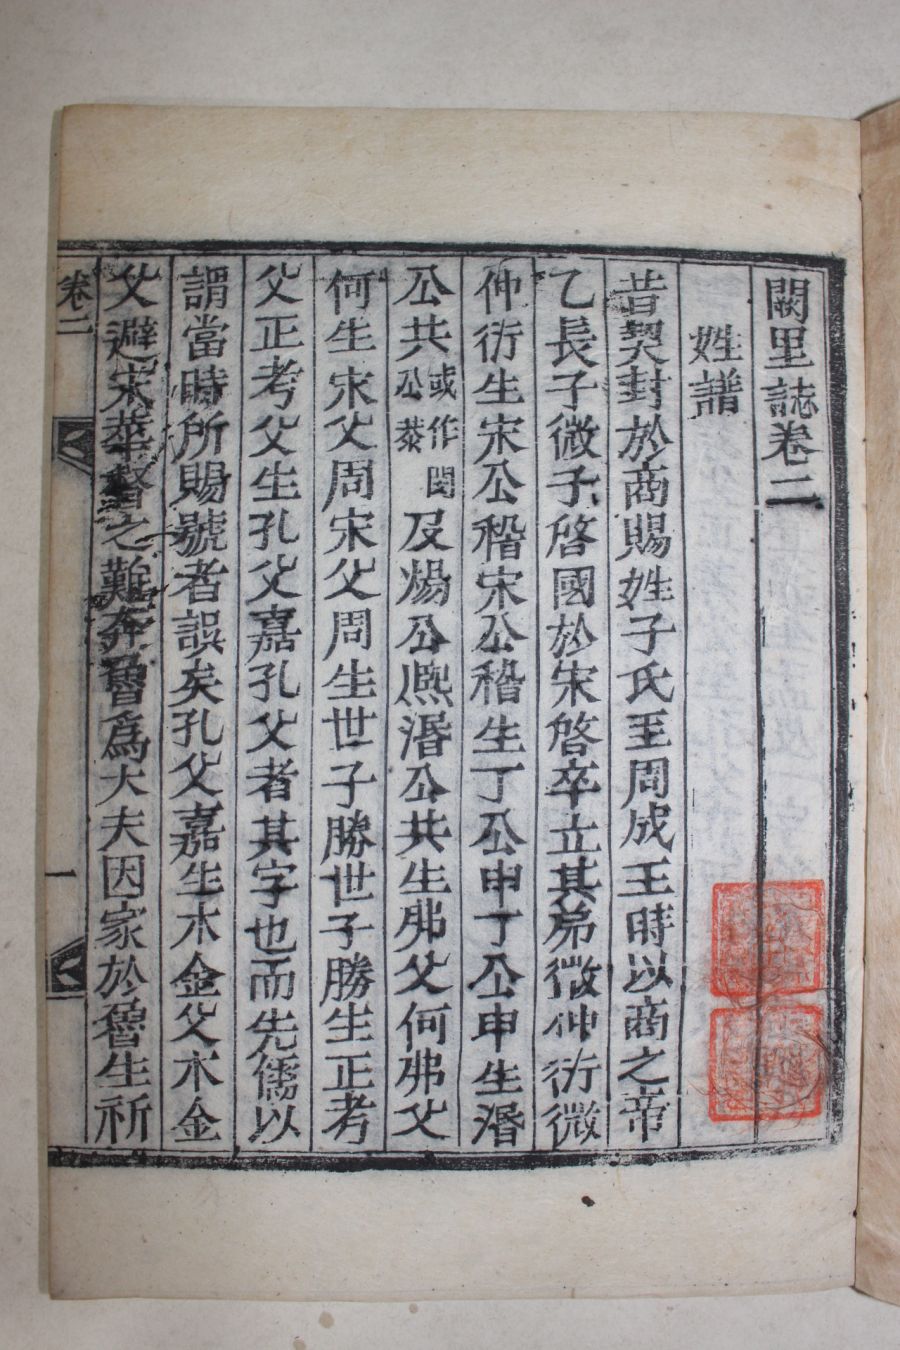 闕里誌卷二
姓譜
昔契封於商賜姓子氏至周成王時以商之帝
乙長子微子啓國於宋啓卒立其弟微仲衍微
仲衍生宋公稽宋公稽生丁公申丁公申生湣
公共或作閔公恭及煬公熈湣公共生弗父何弗父
何生宋父周宋父周生世子勝世子勝生正考
父正考父生孔父嘉孔父者其字也而先儒以
謂當時所賜號者誤矣孔父嘉生木金父木金
父避宋華督之難奔魯爲大夫因家於魯生祈
卷二
一